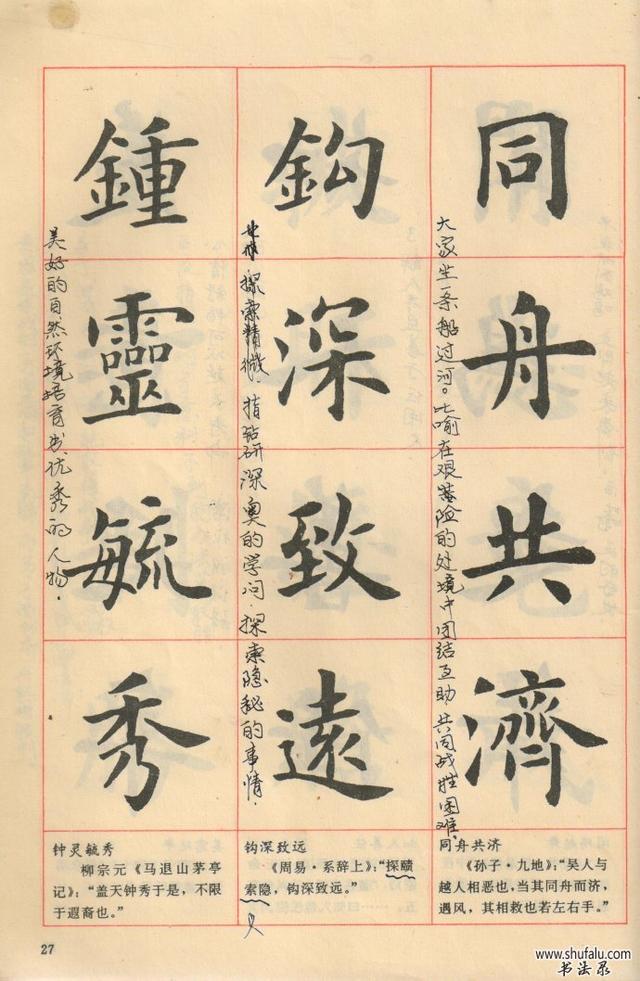 同舟共濟
大家坐一条船过河。比喻在艰险的处境中团结互助，共同战胜困难。
鈎深致遠
探索精微．指钻研深奥的学问．探索隐秘的事情．
鍾靈毓秀
美好的自然环境培育出优秀的人物．
同舟共济
《孙子·九地》：“吴人与
越人相恶也，当其同舟而济，
遇风，其相救也若左右手。”
钩深致远
《周易·系辞上》：“探赜
索隐，钩深致远。”
钟灵毓秀
柳宗元《马退山茅亭
记》：“盖天钟秀于是，不限
于遐裔也。”
27
www.shufalu.com
书法录